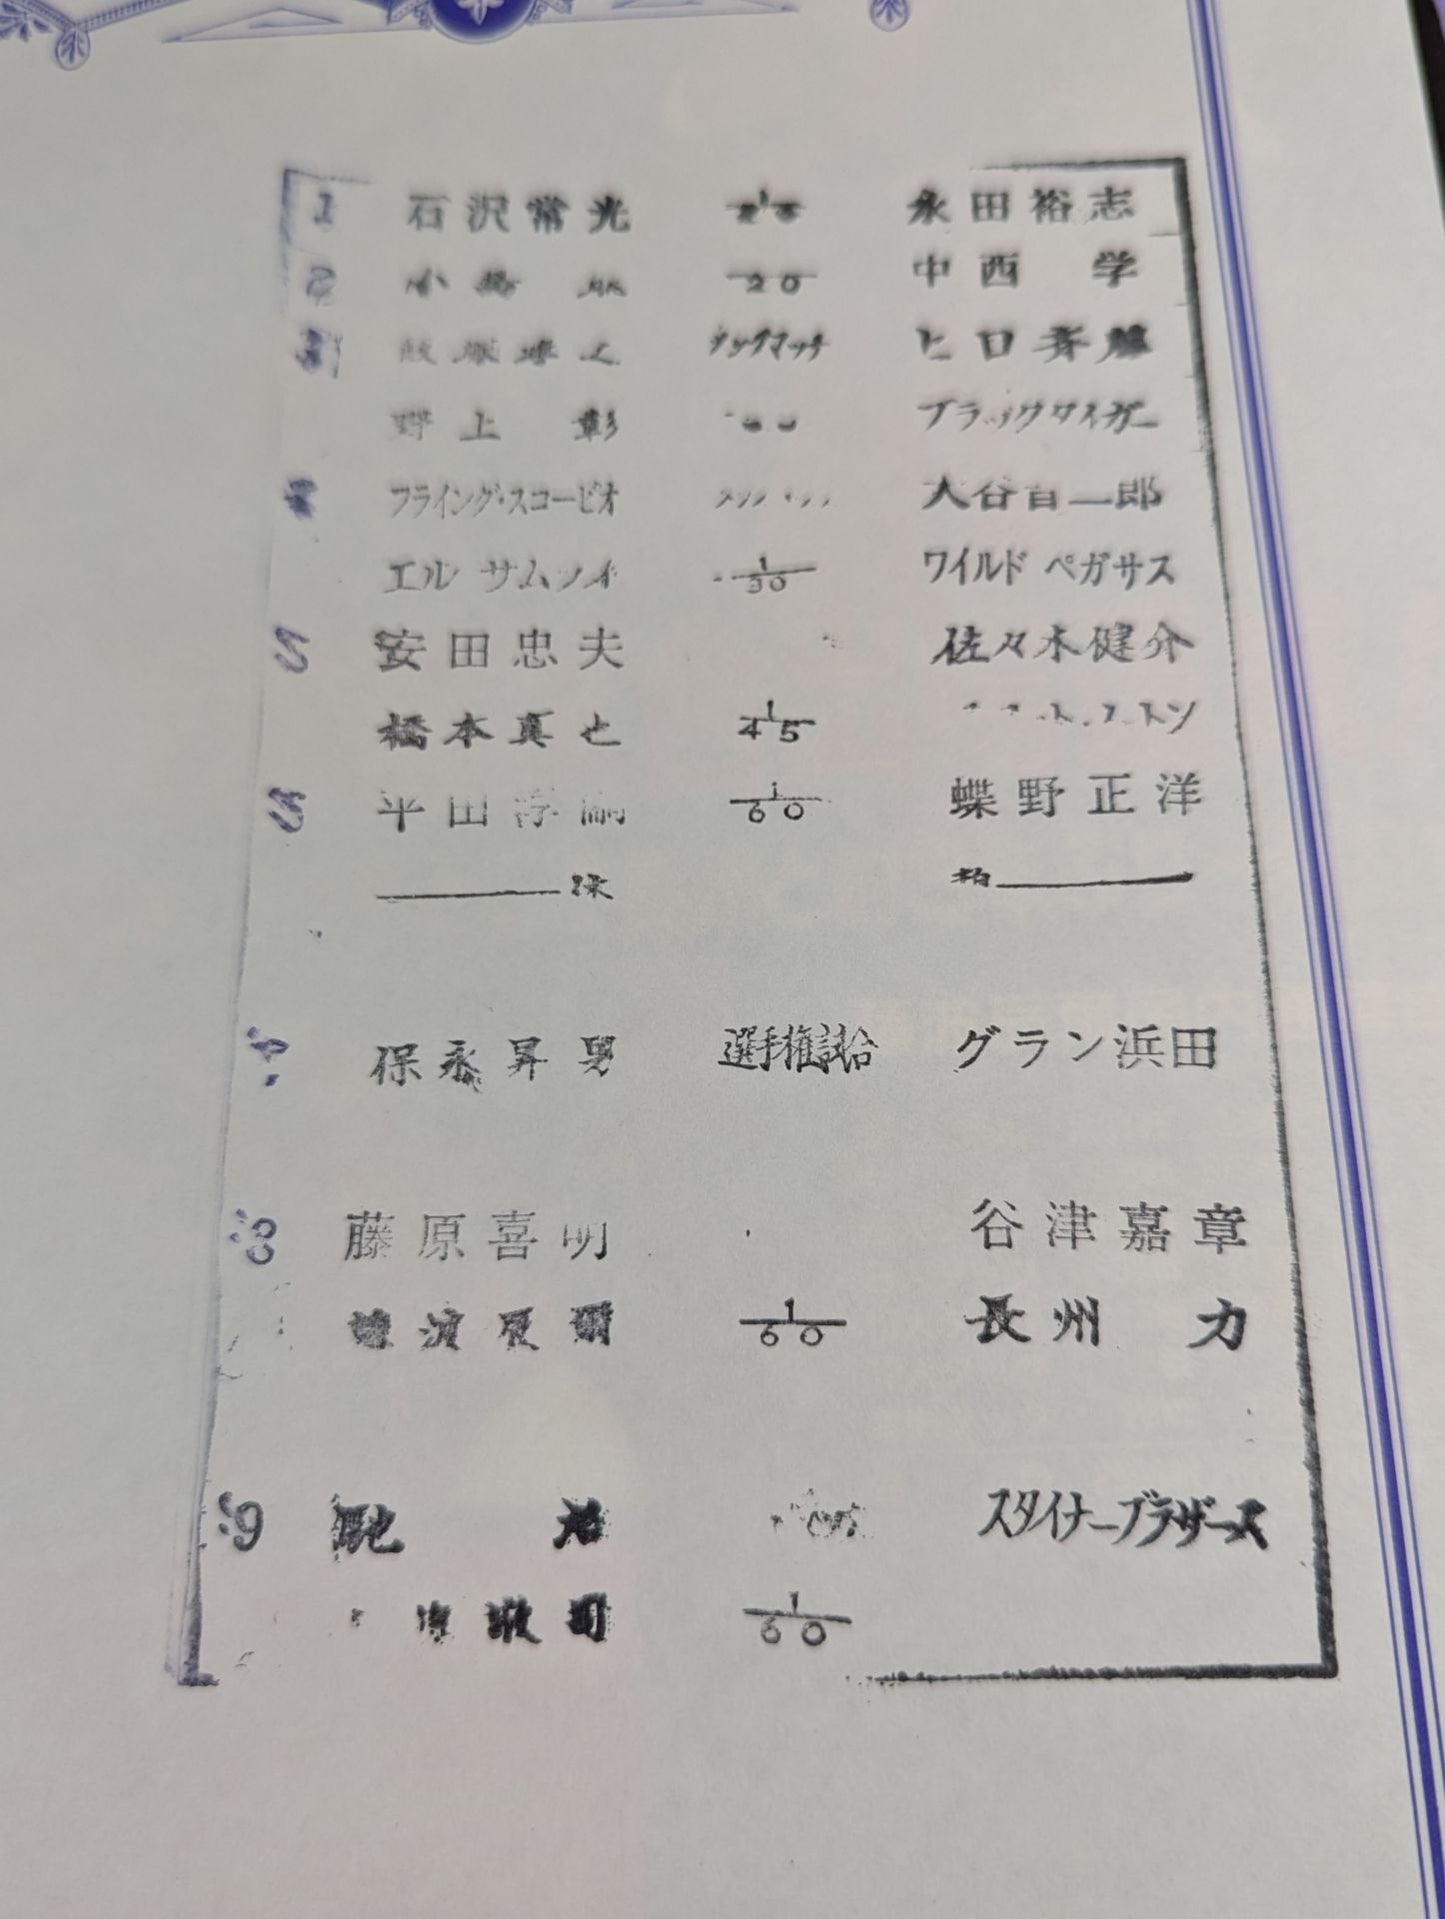 1 石沢常光 1/15 永田裕志
2 小島 1/20 中西 学
3 タッグマッチ ヒロ斉藤
野上 彰 ブラックタイガー
4 フライング・スコーピオ 大谷晋二郎
エル サムライ 1/30 ワイルド ペガサス
5 安田忠夫 佐々木健介
橋本真也 1/45 ストン
6 平田淳嗣 1/60 蝶野正洋
休 憩
7 保永昇男 選手権試合 グラン浜田
8 藤原喜明 谷津嘉章
藤波辰爾 1/60 長州 力
9 馳 浩 スタイナーブラザース
敬司 1/60